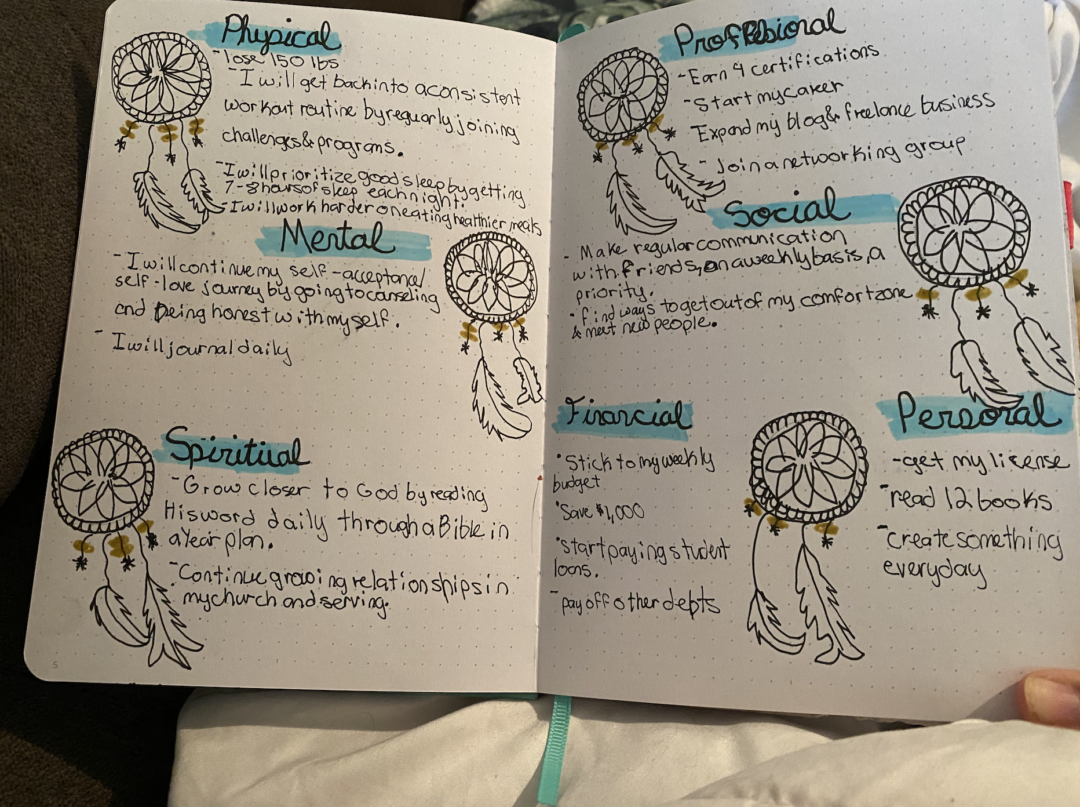 Physical
- lose 150 lbs
- I will get back into a consistent
workout routine by reguarly joining
challenges & programs.
- I will prioritize good sleep by getting
7-8 hours of sleep each night.
- I will work harder on eating healthier meals
Mental
- I will continue my self-acceptance/
self-love journey by going to counseling
and being honest with myself.
- I will journal daily
Spiritual
- Grow closer to God by reading
His word daily through a Bible in
a Year plan.
- Continue growing relationships in
my church and serving.
5
Professional
- Earn 4 certifications
- Start my career
Expand my blog & freelance business
- Join a networking group
Social
- Make regular communication
with friends, on a weekly basis, a
priority.
• find ways to get out of my comfort zone
& meet new people.
Financial
• Stick to my weekly
budget
• Save $1,000
• start paying student
loans.
- pay off other depts
Personal
- get my license
- read 12 books
- create something
everyday